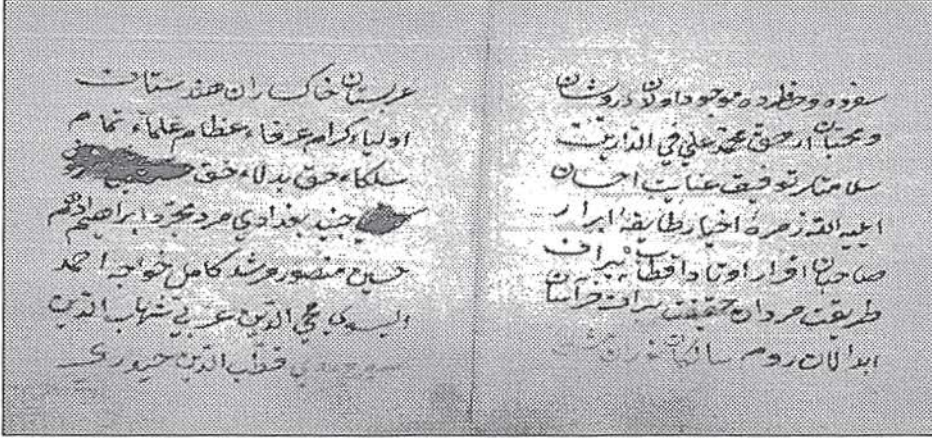 سفرده وحظرده موجود اولان دروبشان
ومحبان ارحق محمد علي في الدارين
سلامتلر توفيق عنايت احسان
ايليه الله زمرهٔ اخيار طايفهٔ ابرار
صاحبان اقرار اوتاد اقطاب پيران
طريقت مردان حقيقت
ابدالان روم
عربستان خاكساران هندستان
اولياء كرام عرفاء عظام علماء تمام
سلكاء حق بدلاء حق
جنيد بغدادي مرد مجرد ابراهيم ادهم
حسين منصور مرشد كامل خواجه احمد
اليسوي محي الدين عربي شهاب الدين
قطب الدين حيدري